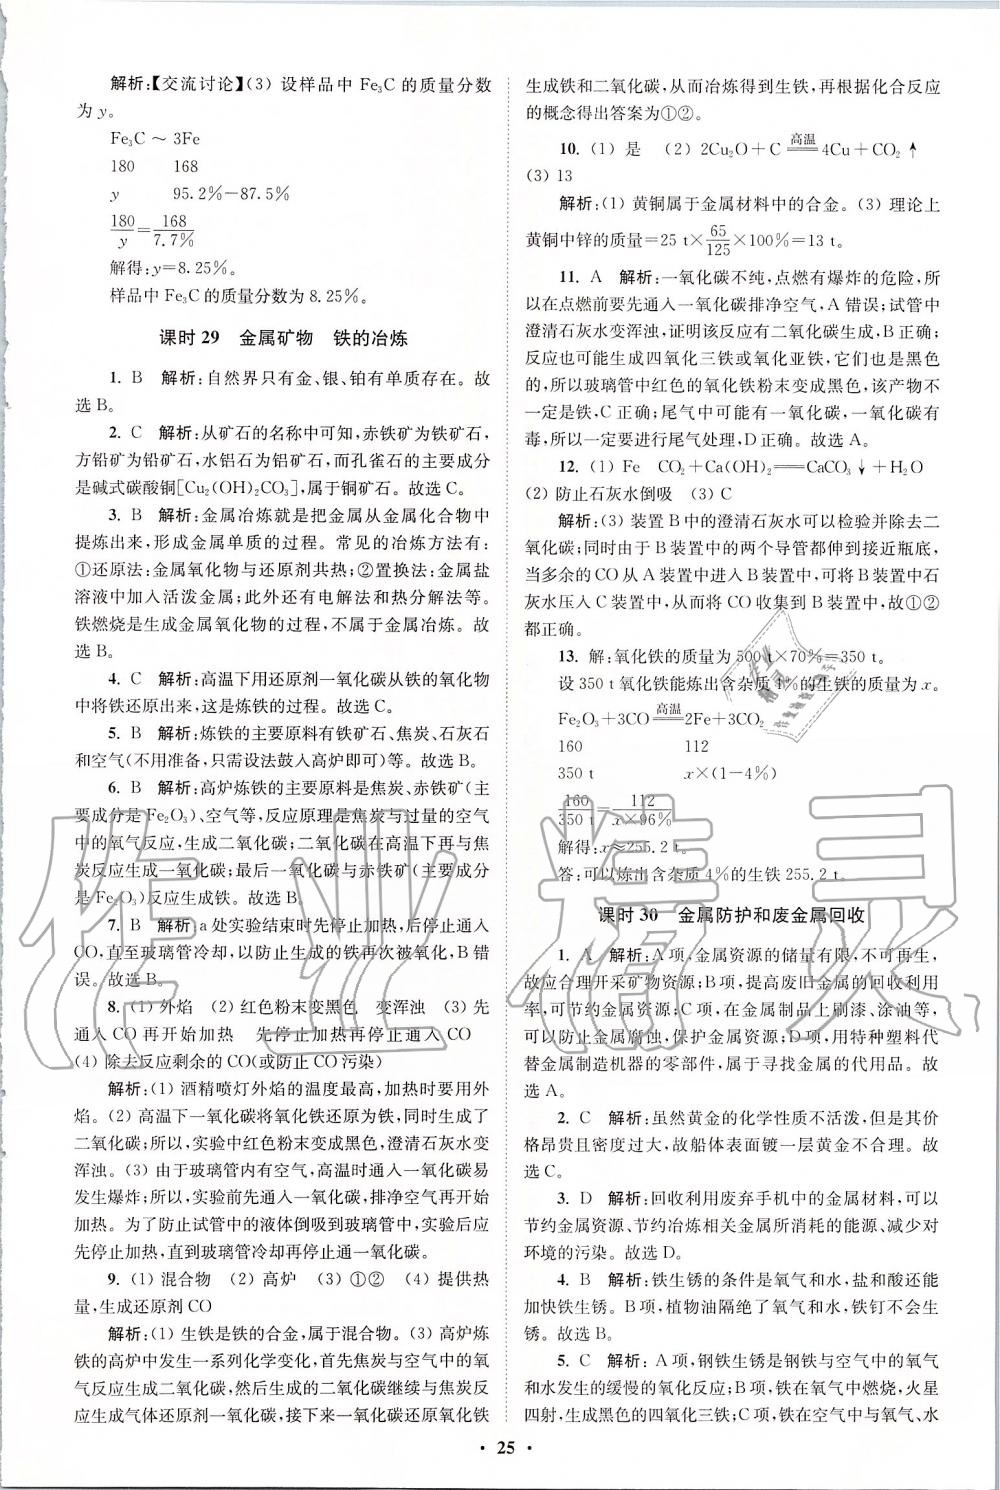 解析:【交流讨论】(3) 设样品中 Fe₃C 的质量分数
为 y。
Fe₃C ～ 3Fe
180 168
y 95.2%－87.5%
180/y＝168/7.7%
解得:y＝8.25%。
样品中 Fe₃C 的质量分数为 8.25%。
课时 29 金属矿物 铁的冶炼
1. B 解析:自然界只有金、银、铂有单质存在。故
选 B。
2. C 解析:从矿石的名称中可知,赤铁矿为铁矿石,
方铅矿为铅矿石,水铝石为铝矿石,而孔雀石的主要成分
是碱式碳酸铜[Cu₂(OH)₂CO₃],属于铜矿石。故选 C。
3. B 解析:金属冶炼就是把金属从金属化合物中
提炼出来,形成金属单质的过程。常见的冶炼方法有:
①还原法:金属氧化物与还原剂共热;②置换法:金属盐
溶液中加入活泼金属;此外还有电解法和热分解法等。
铁燃烧是生成金属氧化物的过程,不属于金属冶炼。故
选 B。
4. C 解析:高温下用还原剂一氧化碳从铁的氧化物
中将铁还原出来,这是炼铁的过程。故选 C。
5. B 解析:炼铁的主要原料有铁矿石、焦炭、石灰石
和空气(不用准备,只需设法鼓入高炉即可)等。故选 B。
6. B 解析:高炉炼铁的主要原料是焦炭、赤铁矿(主
要成分是 Fe₂O₃)、空气等,反应原理是焦炭与过量的空气
中的氧气反应,生成二氧化碳;二氧化碳在高温下再与焦
炭反应生成一氧化碳;最后一氧化碳与赤铁矿(主要成分
是 Fe₂O₃)反应生成铁。故选 B。
7. B 解析:a 处实验结束时先停止加热,后停止通入
CO,直至玻璃管冷却,以防止生成的铁再次被氧化,B 错
误。故选 B。
8. (1) 外焰 (2) 红色粉末变黑色 变浑浊 (3) 先
通入 CO 再开始加热 先停止加热再停止通入 CO
(4) 除去反应剩余的 CO(或防止 CO 污染)
解析:(1) 酒精喷灯外焰的温度最高,加热时要用外
焰。(2) 高温下一氧化碳将氧化铁还原为铁,同时生成了
二氧化碳;所以,实验中红色粉末变成黑色,澄清石灰水变
浑浊。(3) 由于玻璃管内有空气,高温时通入一氧化碳易
发生爆炸;所以,实验前先通入一氧化碳,排净空气再开始
加热。为了防止试管中的液体倒吸到玻璃管中,实验后应
先停止加热,直到玻璃管冷却再停止通一氧化碳。
9. (1) 混合物 (2) 高炉 (3) ①② (4) 提供热
量,生成还原剂 CO
解析:(1) 生铁是铁的合金,属于混合物。(3) 高炉炼
铁的高炉中发生一系列化学变化,首先焦炭与空气中的氧
气反应生成二氧化碳,然后生成的二氧化碳继续与焦炭反
应生成气体还原剂一氧化碳,接下来一氧化碳还原氧化铁
生成铁和二氧化碳,从而冶炼得到生铁,再根据化合反应
的概念得出答案为①②。
10. (1) 是 (2) 2Cu₂O＋C 高温══ 4Cu＋CO₂↑
(3) 13
解析:(1) 黄铜属于金属材料中的合金。(3) 理论上
黄铜中锌的质量＝25 t×65/125×100%＝13 t。
11. A 解析:一氧化碳不纯,点燃有爆炸的危险,所
以在点燃前要先通入一氧化碳排净空气,A 错误;试管中
澄清石灰水变浑浊,证明该反应有二氧化碳生成,B 正确;
反应也可能生成四氧化三铁或氧化亚铁,它们也是黑色
的,所以玻璃管中红色的氧化铁粉末变成黑色,该产物不
一定是铁,C 正确;尾气中可能有一氧化碳,一氧化碳有
毒,所以一定要进行尾气处理,D 正确。故选 A。
12. (1) Fe CO₂＋Ca(OH)₂══CaCO₃↓＋H₂O
(2) 防止石灰水倒吸 (3) C
解析:(3) 装置 B 中的澄清石灰水可以检验并除去二
氧化碳;同时由于 B 装置中的两个导管都伸到接近瓶底,
当多余的 CO 从 A 装置中进入 B 装置中,可将 B 装置中石
灰水压入 C 装置中,从而将 CO 收集到 B 装置中,故①②
都正确。
13. 解:氧化铁的质量为 500 t×70%＝350 t。
设 350 t 氧化铁能炼出含杂质 4%的生铁的质量为 x。
Fe₂O₃＋3CO 高温══ 2Fe＋3CO₂
160 112
350 t x×(1－4%)
160/350 t＝112/x×96%
解得:x≈255.2 t。
答:可以炼出含杂质 4%的生铁 255.2 t。
课时 30 金属防护和废金属回收
1. A 解析:A 项,金属资源的储量有限,不可再生,
故应合理开采矿物资源;B 项,提高废旧金属的回收利用
率,可节约金属资源;C 项,在金属制品上刷漆、涂油等,
可以防止金属腐蚀,保护金属资源;D 项,用特种塑料代
替金属制造机器的零部件,属于寻找金属的代用品。故
选 A。
2. C 解析:虽然黄金的化学性质不活泼,但是其价
格昂贵且密度过大,故船体表面镀一层黄金不合理。故
选 C。
3. D 解析:回收利用废弃手机中的金属材料,可以
节约金属资源、节约冶炼相关金属所消耗的能源、减少对
环境的污染。故选 D。
4. B 解析:铁生锈的条件是氧气和水,盐和酸还能
加快铁生锈。B 项,植物油隔绝了氧气和水,铁钉不会生
锈。故选 B。
5. C 解析:A 项,钢铁生锈是钢铁与空气中的氧气
和水发生的缓慢的氧化反应;B 项,铁在氧气中燃烧,火星
四射,生成黑色的四氧化三铁;C 项,铁在空气中与氧气、水
· 25 ·
作业精灵